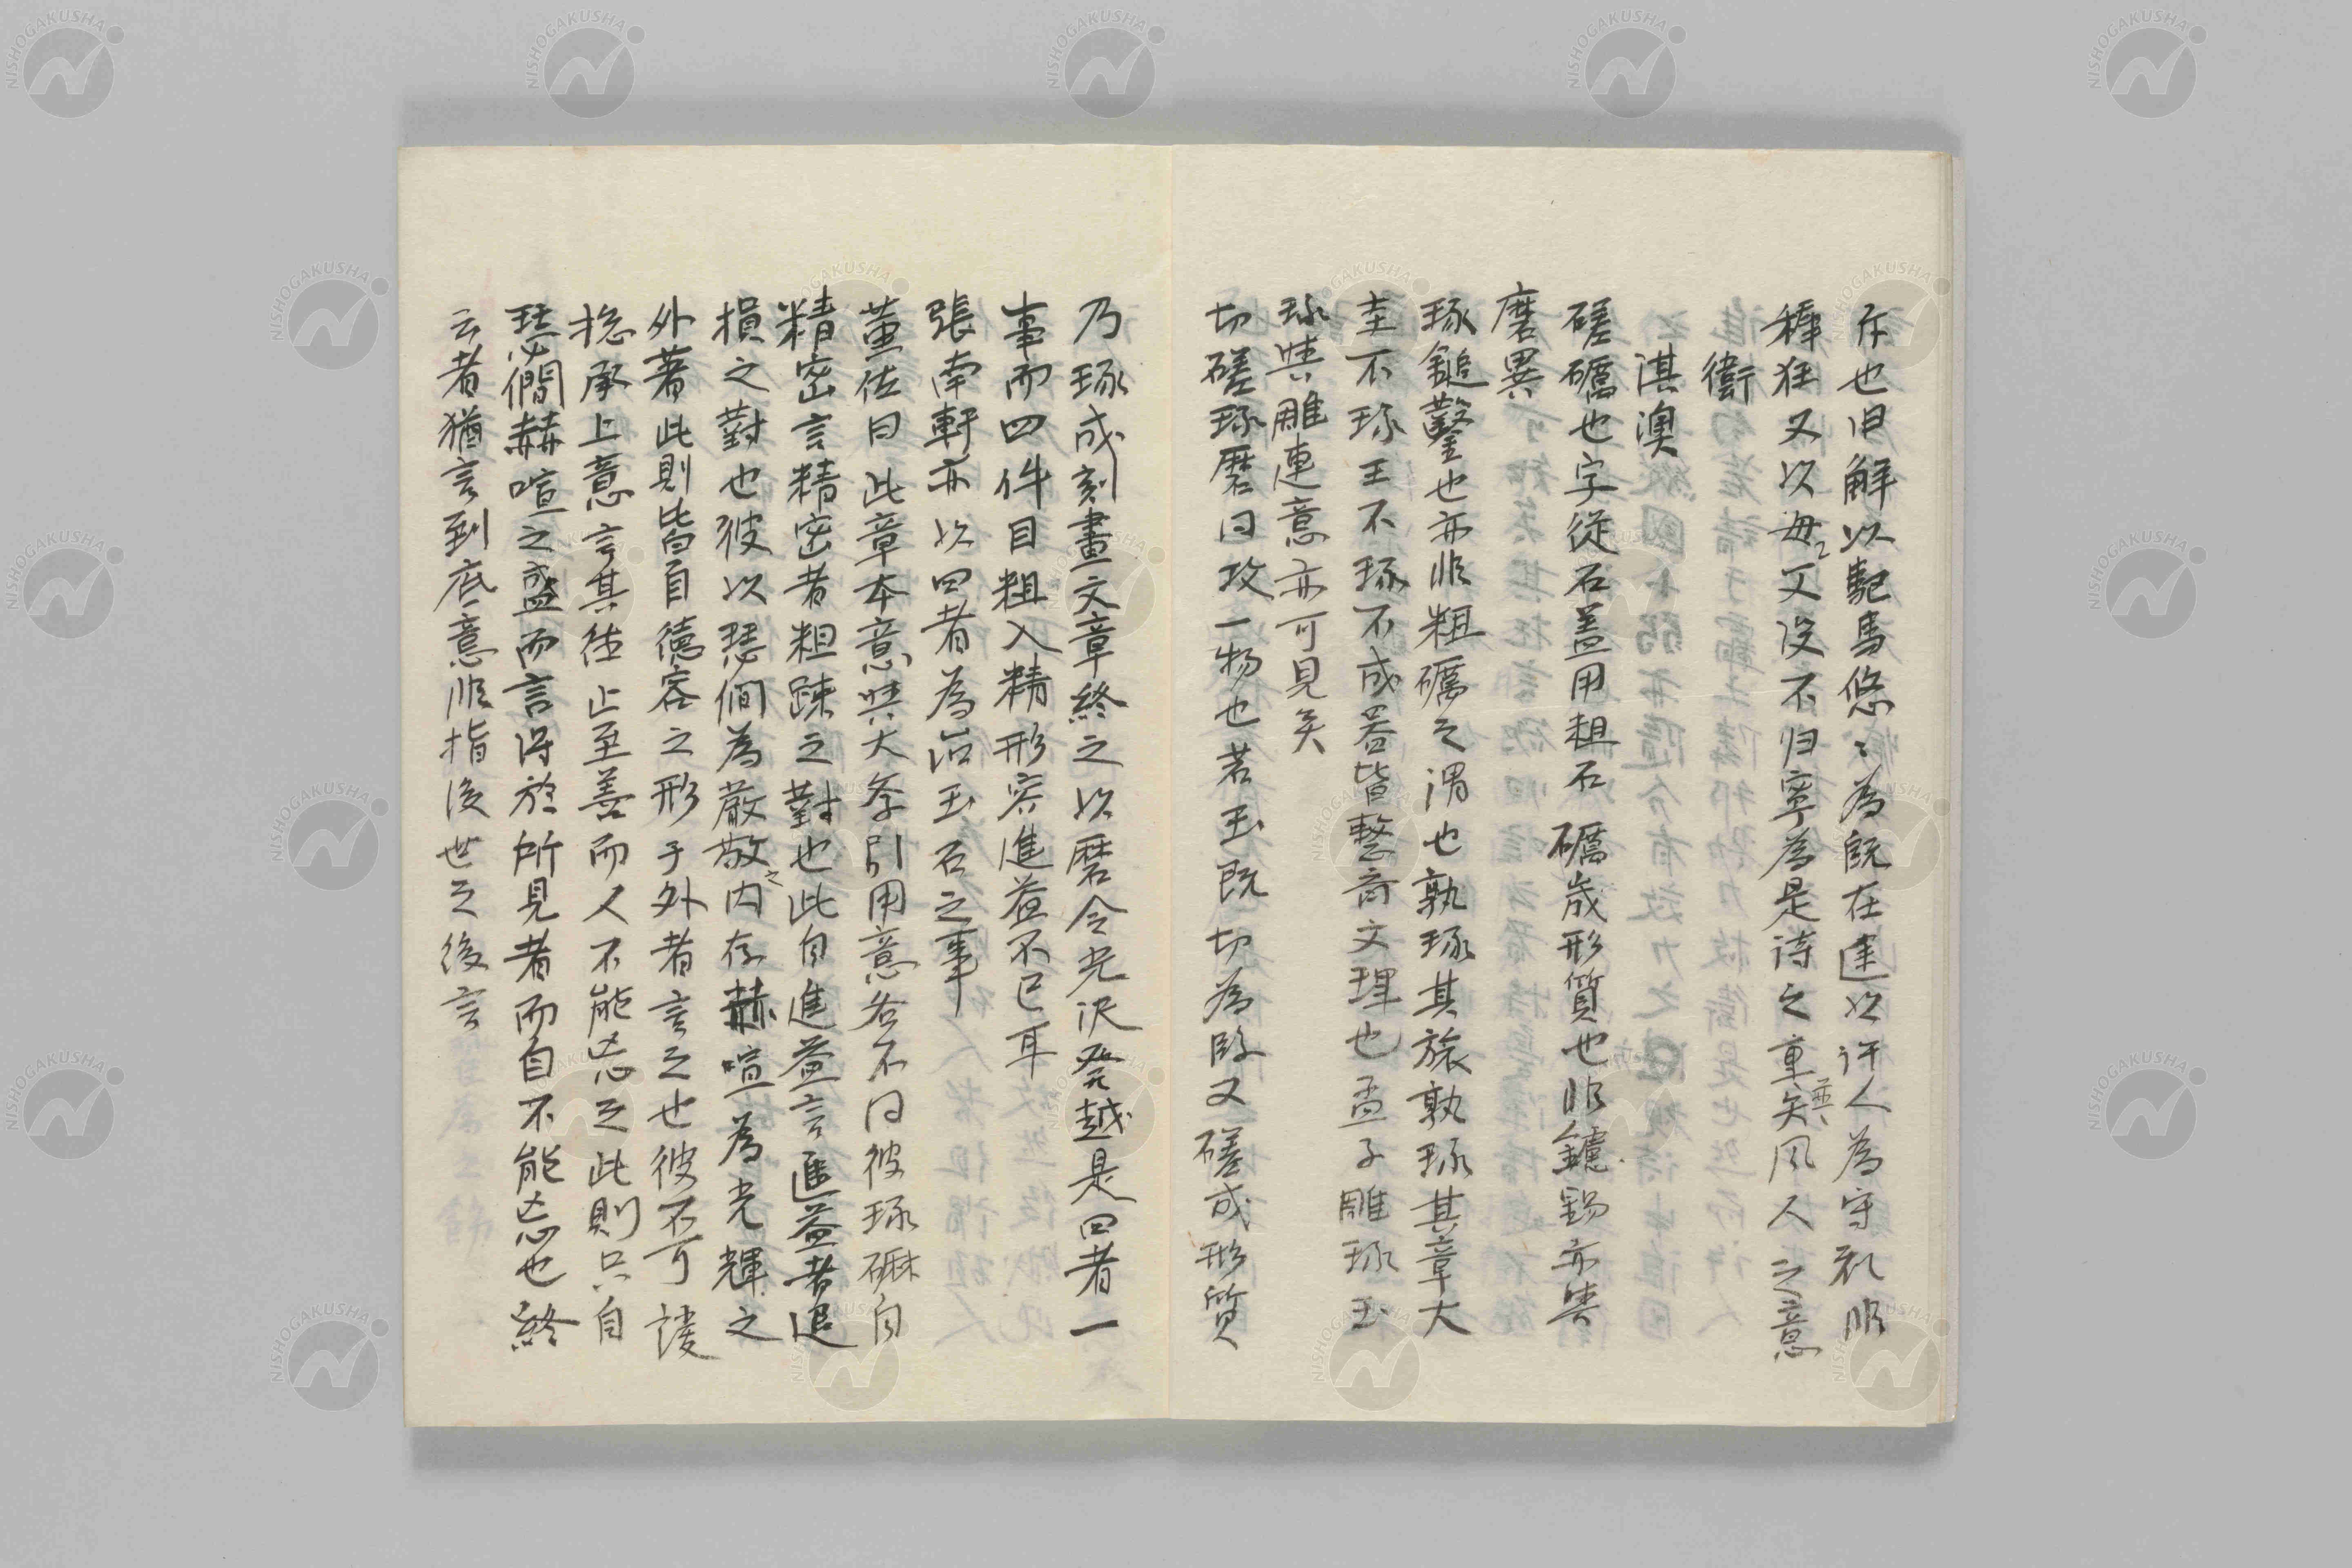 斥也旧解以駈馬悠〻為既在途以許人為守礼順
穉狂又以毋〻又没不归寧為是诗之重矣与風人之意
衞
淇澳
磋礪也字從石盖用粗石礪歳形質也非鑢錫亦与
磨異
琢鎚鑿也亦非粗礪之謂也孰琢其旅孰琢其章大
圭不琢玉不琢不成器皆整音文理也孟子雕琢玉
琢与雕連意亦可見矣
切磋琢磨同攻一物也若玉既切為段又磋成形質
乃琢成刻畫文章終之以磨令光沢発越是四者一
事而四件目粗入精形容進益不已耳
張南軒亦以四者為治玉石之事
董佐曰此章本意与大学引用意各不同彼琢磨自
精密言精密者粗踈之對也此自進益言進益者追
損之對也彼以瑟僩為嚴敬之内存赫喧為光輝之
外著此則皆自德容之形于外者言之也彼不可諼
捴承上意言其徳止至善而人不能忘之此則只自
瑟僩赫喧之盛而言得於所見者而自不能忘也終
云者猶言到底意非指後世之後言